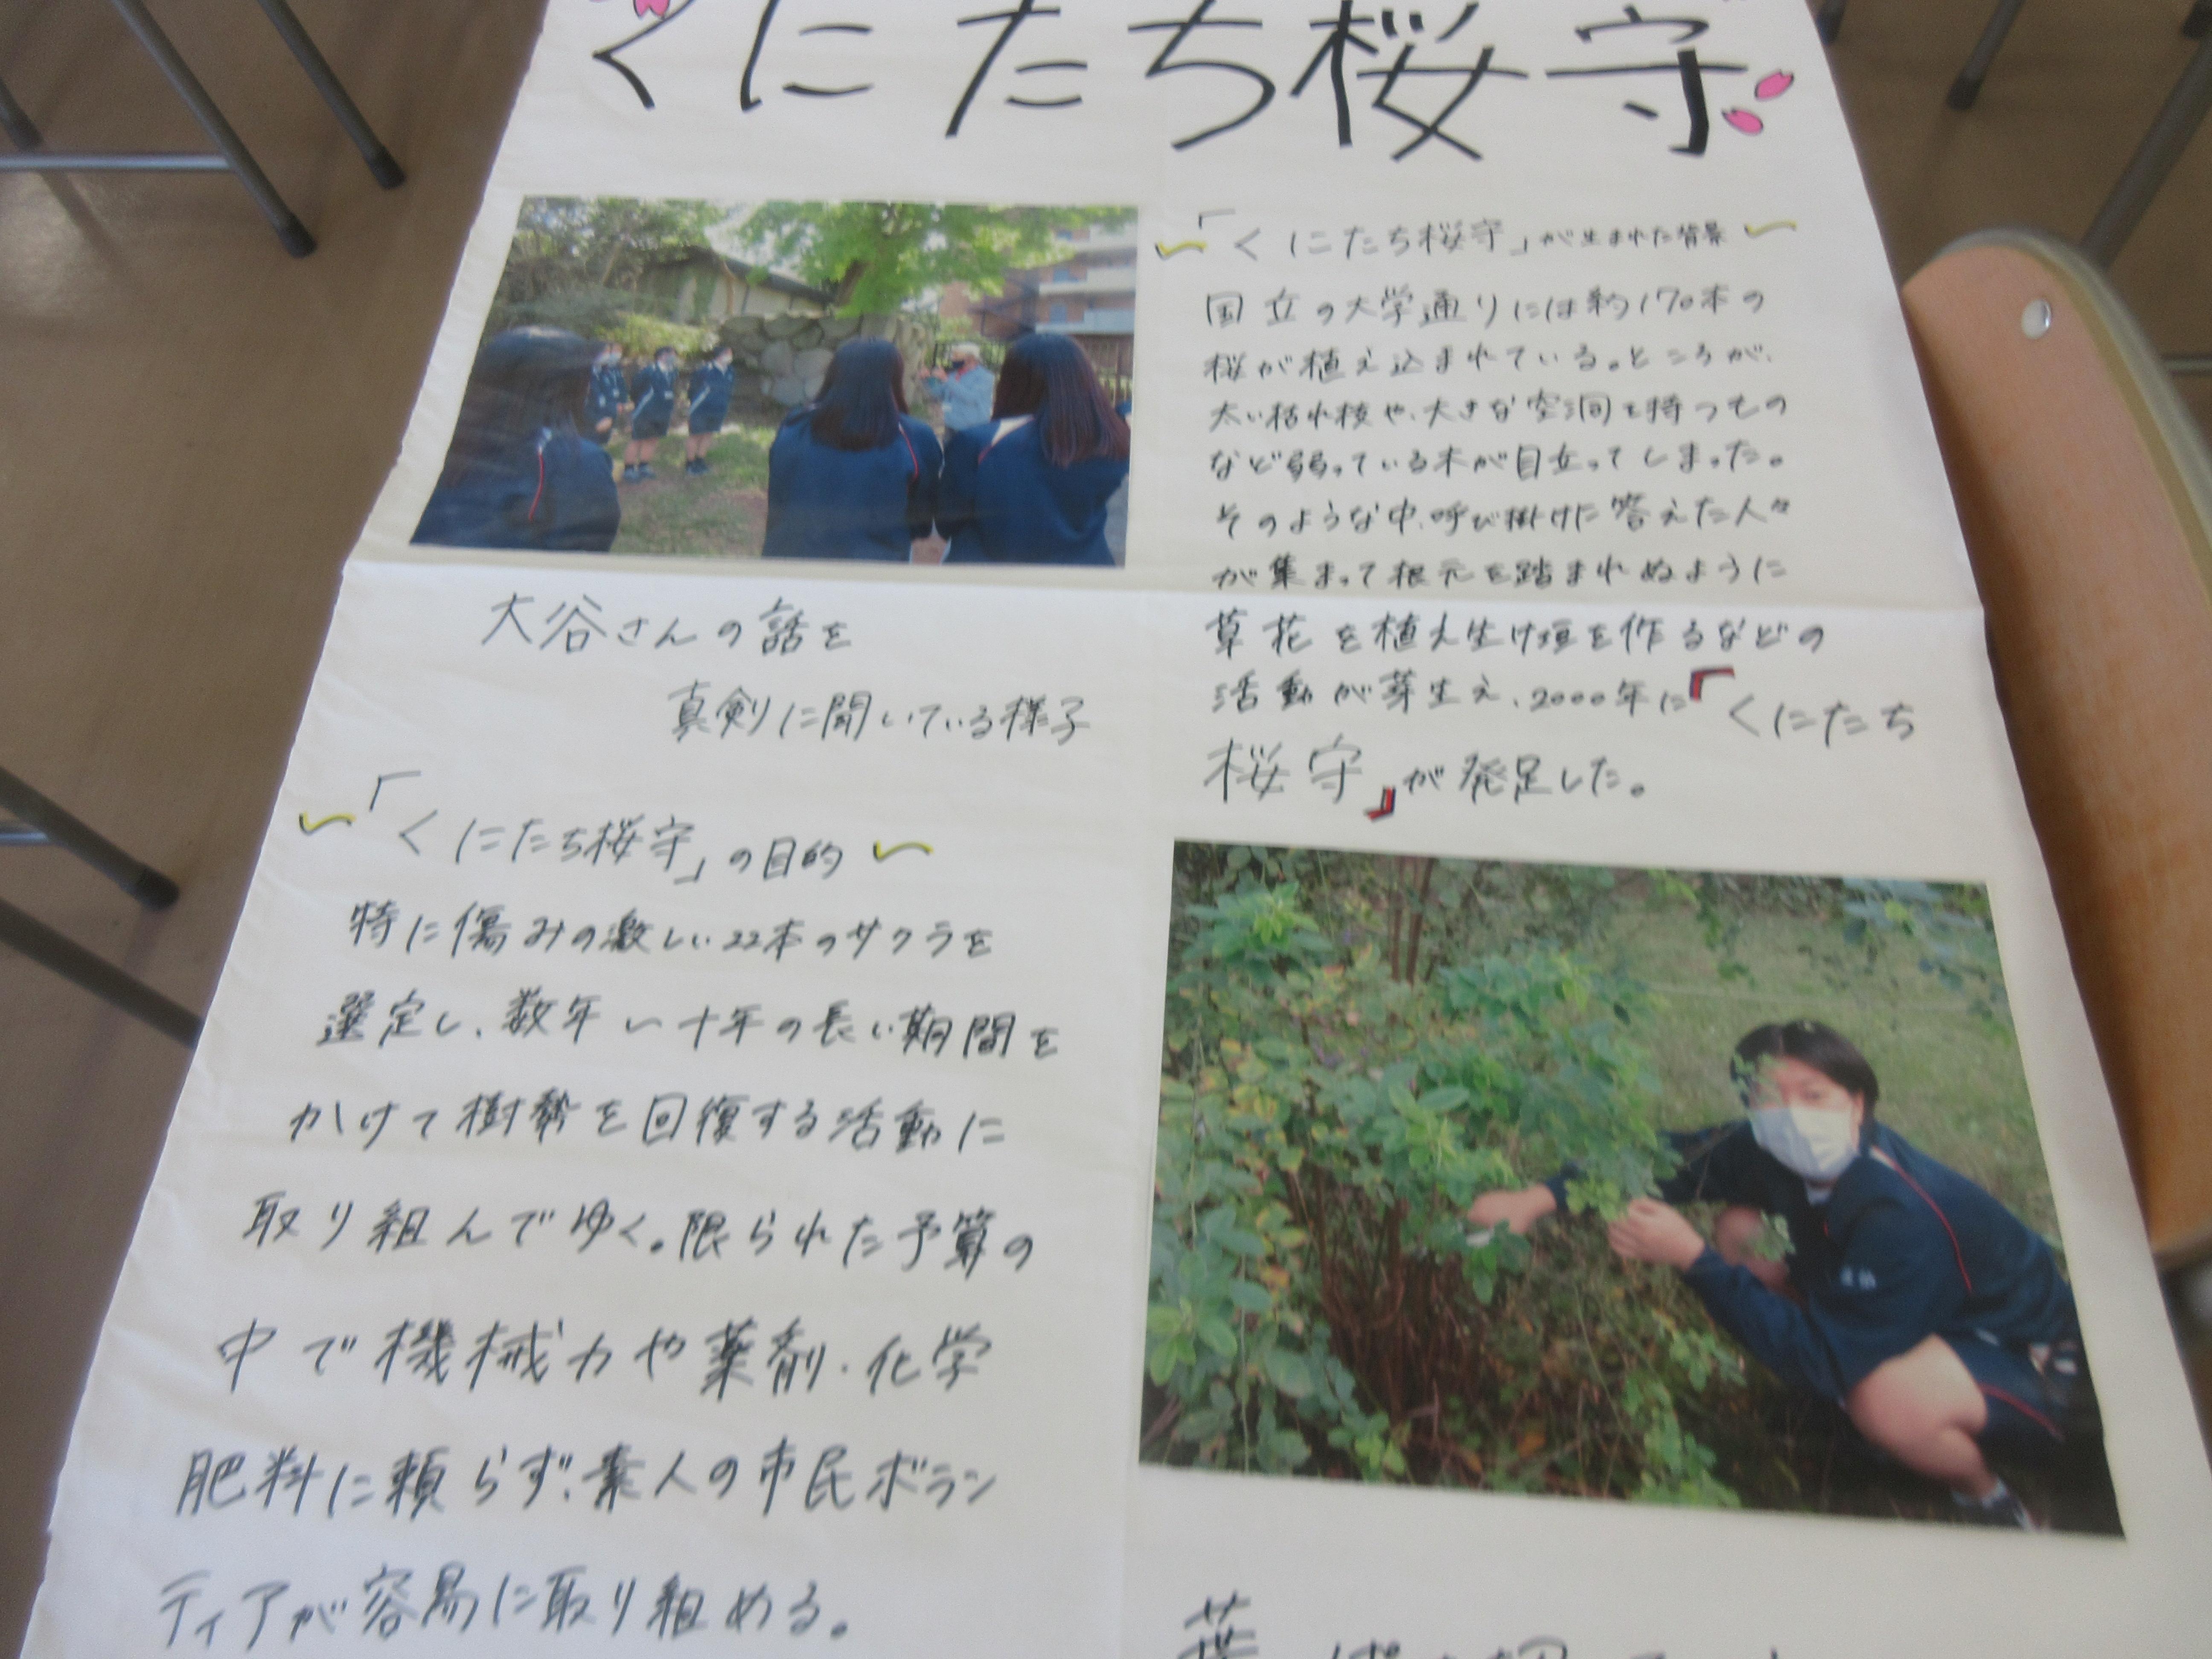 くにたち桜守
「くにたち桜守」が生まれた背景
国立の大学通りには約170本の
桜が植え込まれている。ところが、
太い枯れ枝や、大きな空洞を持つもの
など弱っている木が目立ってしまった。
そのような中、呼び掛けに答えた人々
が集まって根元を踏まれぬように
草花を植え生け垣を作るなどの
活動が芽生え、2000年に『くにたち
桜守』が発足した。
大谷さんの話を
真剣に聞いている様子
「くにたち桜守」の目的
特に傷みの激しい22本のサクラを
選定し、数年〜十年の長い期間を
かけて樹勢を回復する活動に
取り組んでゆく。限られた予算の
中で機械力や薬剤・化学
肥料に頼らず、素人の市民ボラン
ティアが容易に取り組める。